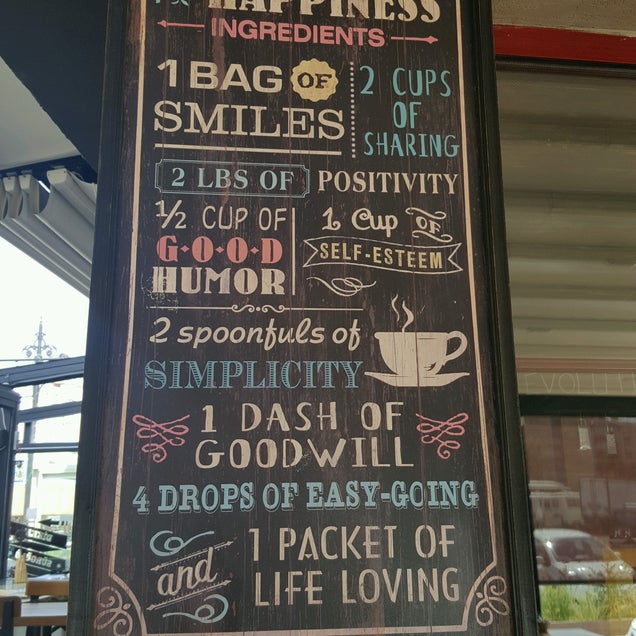 HAPPINESS
INGREDIENTS
1 BAG OF
SMILES
2 CUPS
OF
SHARING
2 LBS OF POSITIVITY
½ CUP OF
G·O·O·D
HUMOR
1 Cup OF
SELF-ESTEEM
2 spoonfuls of
SIMPLICITY
1 DASH OF
GOODWILL
4 DROPS OF EASY-GOING
and
1 PACKET OF
LIFE LOVING